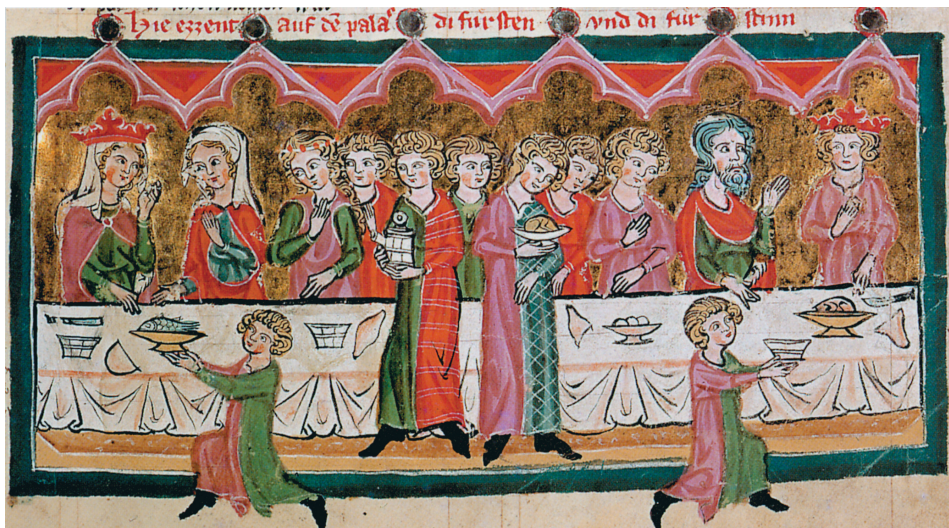 Hie ezzent auf dē palas di fursten vnd di fur stinn